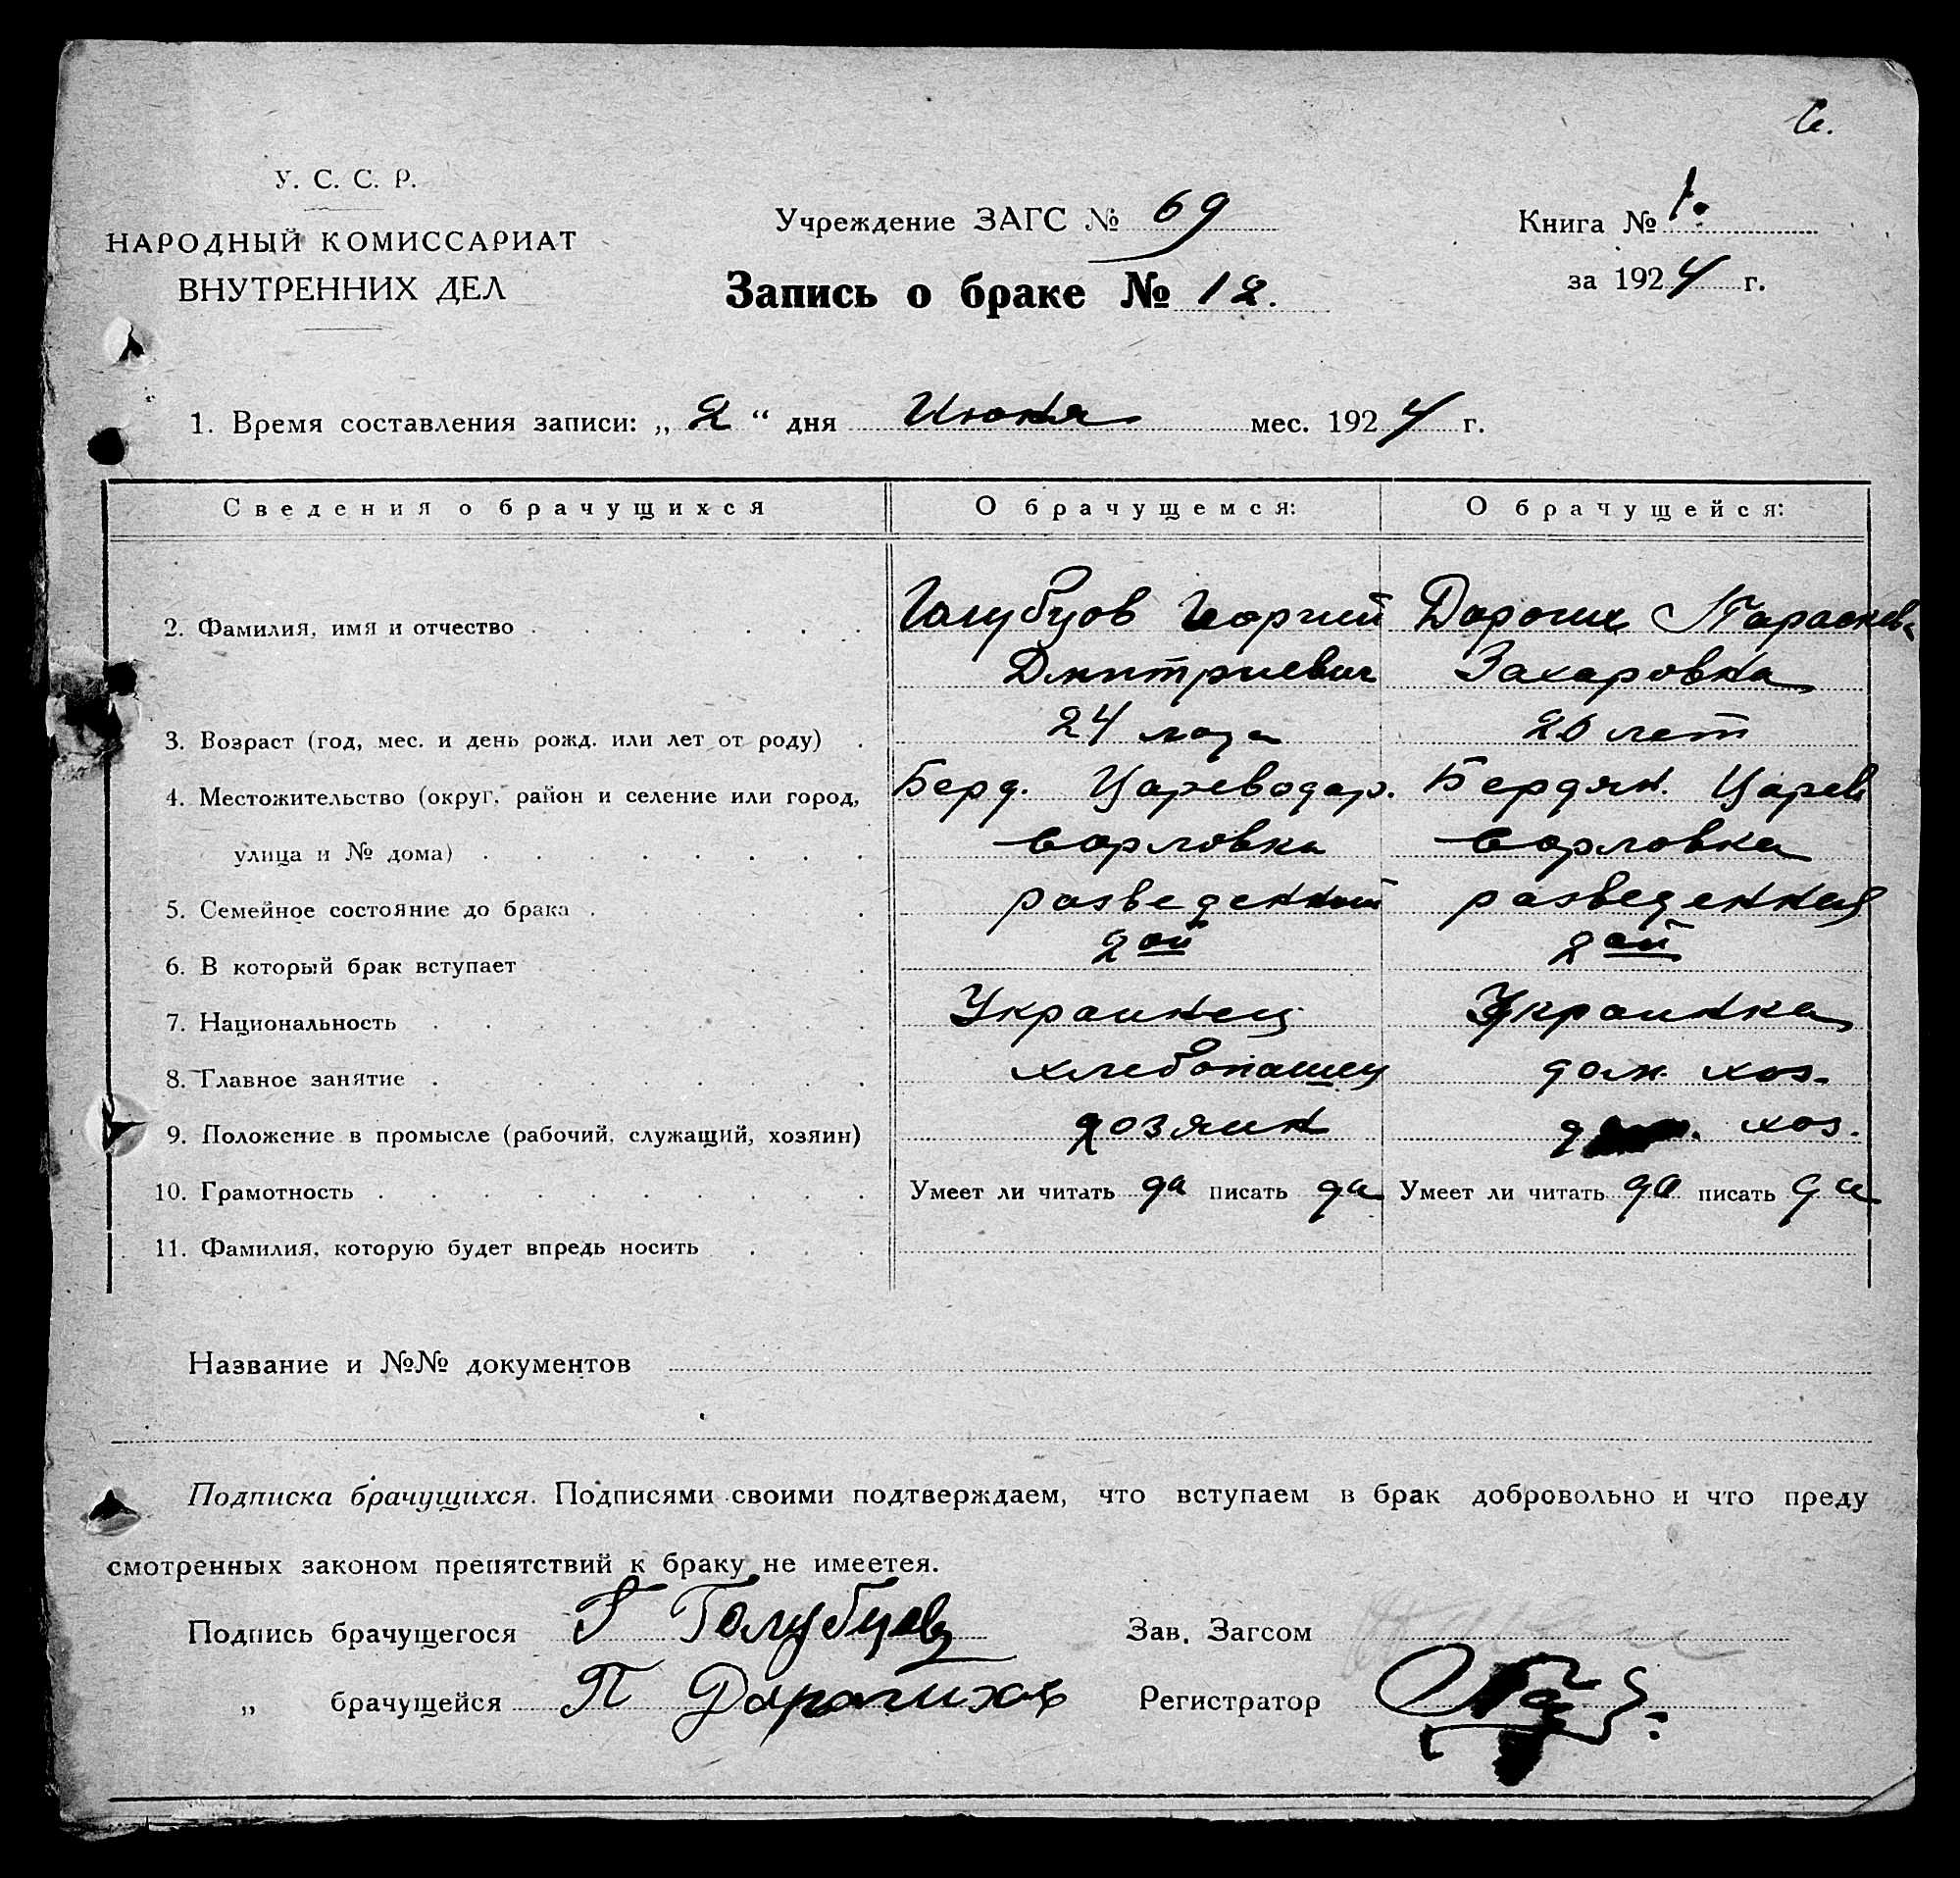 6.
У. С. С. Р.
НАРОДНЫЙ КОМИССАРИАТ
ВНУТРЕННИХ ДЕЛ
Учреждение ЗАГС № 69
Запись о браке № 12.
Книга № 1.
за 1924 г.
1. Время составления записи: „ 2 “ дня Июня мес. 1924 г.
Сведения о брачущихся О брачущемся: О брачущейся:
2. Фамилия, имя и отчество Голубцов Георгий Дорогих Параскев
Дмитриевич Захаровна
3. Возраст (год, мес. и день рожд. или лет от роду) 24 года 26 лет
4. Местожительство (округ, район и селение или город, Берд. Цареводар. Бердян. Царев
улица и № дома) Орловка Орловка
5. Семейное состояние до брака разведенный разведенная
6. В который брак вступает 2ой 2ой
7. Национальность Украинец Украинка
8. Главное занятие хлебопашец дом. хоз.
9. Положение в промысле (рабочий, служащий, хозяин) хозяин хоз.
10. Грамотность Умеет ли читать да писать да Умеет ли читать да писать да
11. Фамилия, которую будет впредь носить
Название и №№ документов
Подписка брачущихся. Подписями своими подтверждаем, что вступаем в брак добровольно и что преду
смотренных законом препятствий к браку не имеетея.
Подпись брачущегося Г Голубцов Зав. Загсом
„ брачущейся П Дорогихов Регистратор